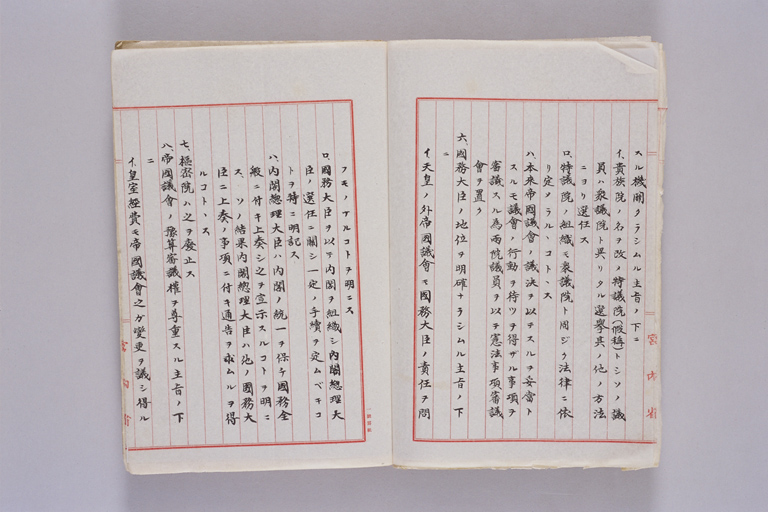 スル機関タラシムル主旨ノ下ニ
イ、貴族院ノ名ヲ改メ特議院(假稱)トシソノ議
員ハ衆議院ト異リタル選擧其ノ他ノ方法
ニヨリ選任ス
ロ、特議院ノ組織モ衆議院ト同ジク法律ニ依
リ定メラルヽコトヽス
ハ、本来帝國議會ノ議決ヲ以テスルヲ妥當ト
スルモ議會ノ行動ヲ待ツヲ得ザル事項ヲ
審議スル為両院議員ヲ以テ憲法事項審議
會ヲ置ク
六、國務大臣ノ地位ヲ明確ナラシムル主旨ノ下
ニ
イ、天皇ノ外帝國議會モ國務大臣ノ責任ヲ問
宮内省
フモノナルコトヲ明ニス
ロ、國務大臣ヲ以テ内閣ヲ組織シ内閣總理大
臣ノ選任ニ關シ一定ノ手續ヲ定ムベキコ
トヲ特ニ明記ス
ハ、内閣總理大臣ハ内閣ノ統一ヲ保チ國務全
般ニ付キ上奏シ之ヲ宣示スルコトヲ明ニ
ス、ソノ結果内閣總理大臣ハ他ノ國務大
臣ニ上奏ノ事項ニ付キ通告ヲ求ムルヲ得
ルコトヽス
七、樞密院ハ之ヲ廢止ス
八、帝國議會ノ豫算審議權ヲ尊重スル主旨ノ下
ニ
イ、皇室經費モ帝國議會之ガ變更ヲ議シ得ル
宮内省